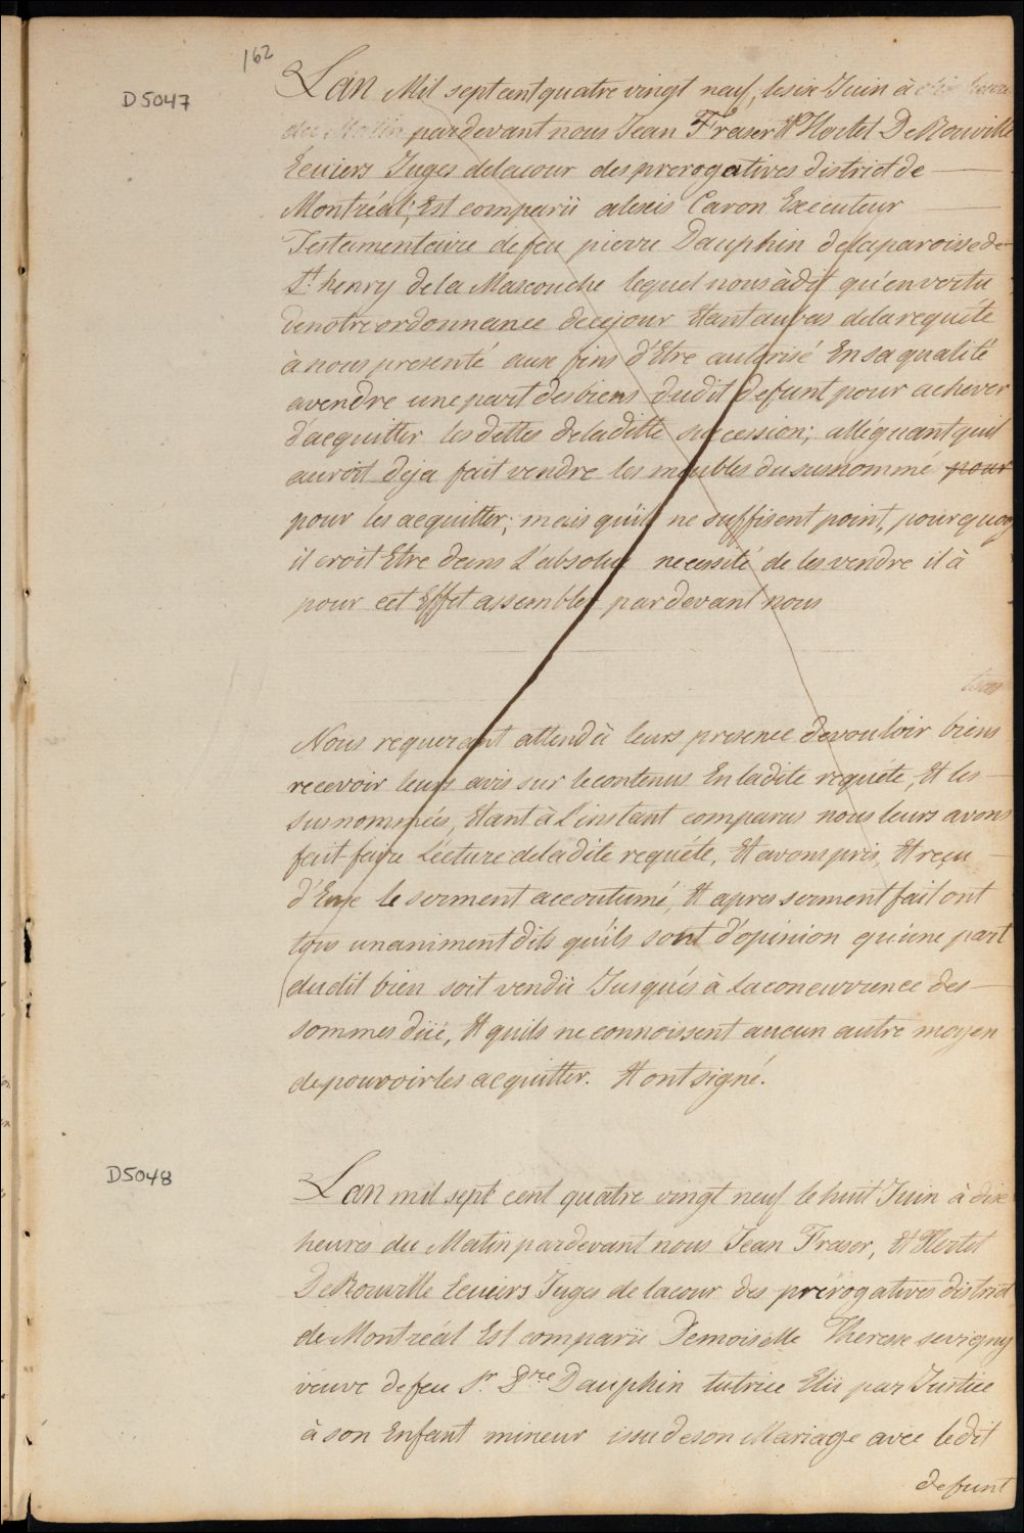 162
D5047
Lan Mil sept cent quatre vingt neuf, le six Juin à dix heures
du Matin pardevant nous Jean Fraser & Hertel De Rouville
Ecuiers Juges delacour des prerogatives district de
Montréal; Est comparü alexis Caron Executeur
Testamentaire de feu pierre Dauphin delaparoisse de
St. henry dela Mascouche lequel nous à dit qu'en vertu
denotre ordonnance decejour Etant aubas dela requête
à nous presenté aux fins d'Etre autorisé En sa qualité
a vendre une part des biens dudit defunt pour achever
d'acquitter les dettes deladitte succession; alléguant quil
auroit deja fait vendre les meubles du susnommé pour
pour les acquitter; mais quils ne suffisent point, pourquoy
il croit Etre dans L'absolue necessité de les vendre il à
pour cet Effet assembler pardevant nous
Nous requerant attendü leurs presence devouloir biens
recevoir leurs avis sur le contenus En ladite requéte, Et les
susnommées, Etant à L'instant comparus nous leurs avons
fait faire Lécture deladite requéte, Et avons pris, Et reçu
d'Eux le serment accoutumé, Et apres serment fait ont
tous unaniment dits qu'ils sont d'opinion qu'une part
dudit bien soit vendü Jusqués à Laconcurrence des
sommes düe, Et quils ne connoissent aucun autre moyen
depouvoir les acquitter. Et ont signé.
D5048
Lan mil sept cent quatre vingt neuf le huit Juin à dix
heures du Matin pardevant nous Jean Fraser, & Hertel
DeRouville Ecuiers Juges de lacour des prérogatives district
de Montréal Est comparüe Demoiselle Therese sevigny
veuve defeu Sr. Pre Dauphin tutrice Elü par Justice
à son Enfant mineur issu deson Mariage avec ledit
defunt